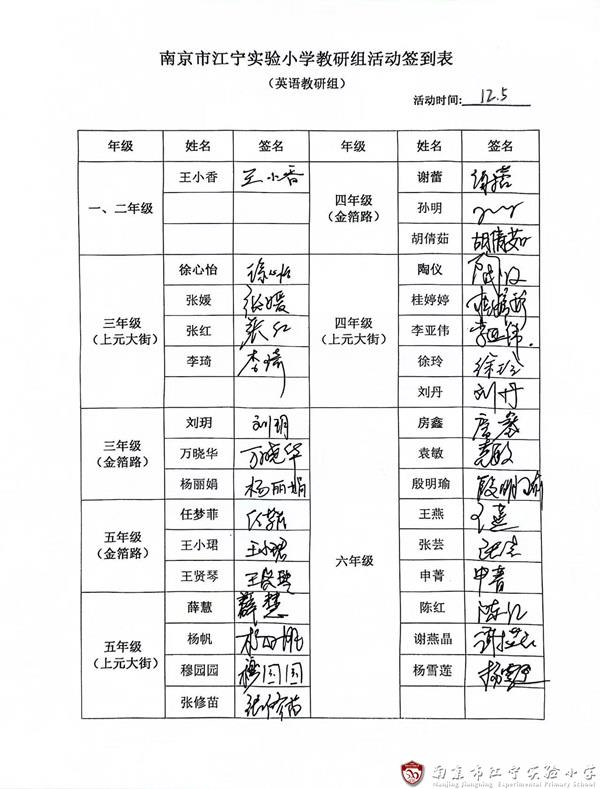 南京市江宁实验小学教研组活动签到表
（英语教研组）
活动时间: 12.5
年级 姓名 签名 年级 姓名 签名
一、二年级 王小香 王小香 四年级（金箔路） 谢蕾 谢蕾
孙明
胡倩茹 胡倩茹
三年级（上元大街） 徐心怡 徐心怡 四年级（上元大街） 陶仪 陶仪
张媛 张媛 桂婷婷 桂婷婷
张红 张红 李亚伟 李亚伟
李琦 李琦 徐玲 徐玲
刘丹 刘丹
三年级（金箔路） 刘玥 刘玥 六年级 房鑫 房鑫
万晓华 万晓华 袁敏 袁敏
杨丽娟 杨丽娟 殷明瑜 殷明瑜
五年级（金箔路） 任梦菲 王燕 王燕
王小珺 王小珺 张芸 张芸
王贤琴 王贤琴 申菁 申菁
五年级（上元大街） 薛慧 薛慧 陈红 陈红
杨帆 杨帆 谢燕晶
穆园园 穆园园 杨雪莲 杨雪莲
张修苗 张修苗
南京市江宁实验小学
Nanjing Jiangning Experimental Primary School